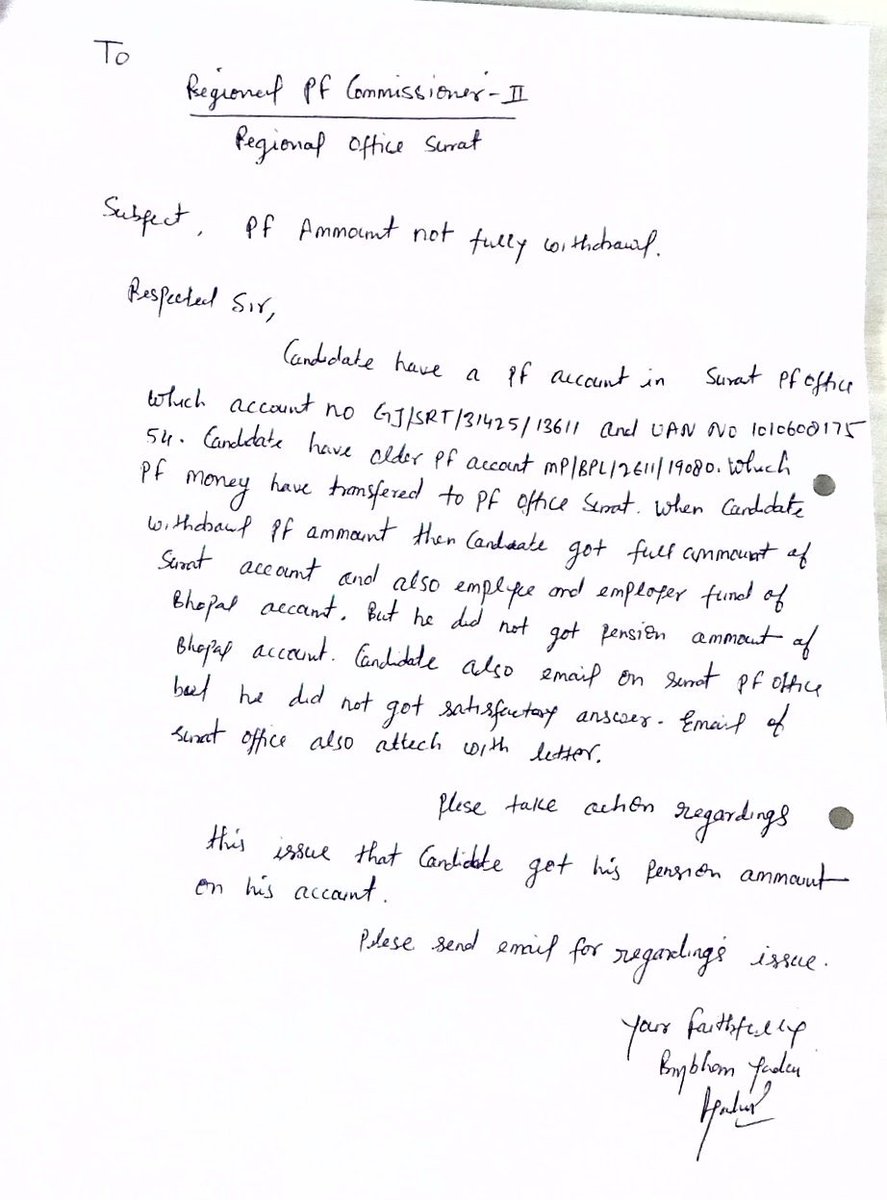 To
Regional PF Commissioner-II
Regional Office Surat
Subject, PF Ammount not fully withdrawl.
Respected Sir,
Candidate have a PF account in Surat PF office
which account no GJ/SRT/31425/13611 and UAN NO 1010600175
54. Candidate have older PF account MP/BPL/2611/19080. Which
PF money have transfered to PF office Surat. When Candidate
withdrawl PF ammount then Candidate got full ammount of
Surat account and also emplyee and employer fund of
Bhopal account. But he did not got pension ammount of
Bhopal account. Candidate also email on Surat PF office
but he did not got satisfactory answer. Email of
Surat office also attech with letter.
Plese take action regardings
this issue that Candidate get his pension ammount
on his account.
Plese send email for regardings issue.
Your faithfully